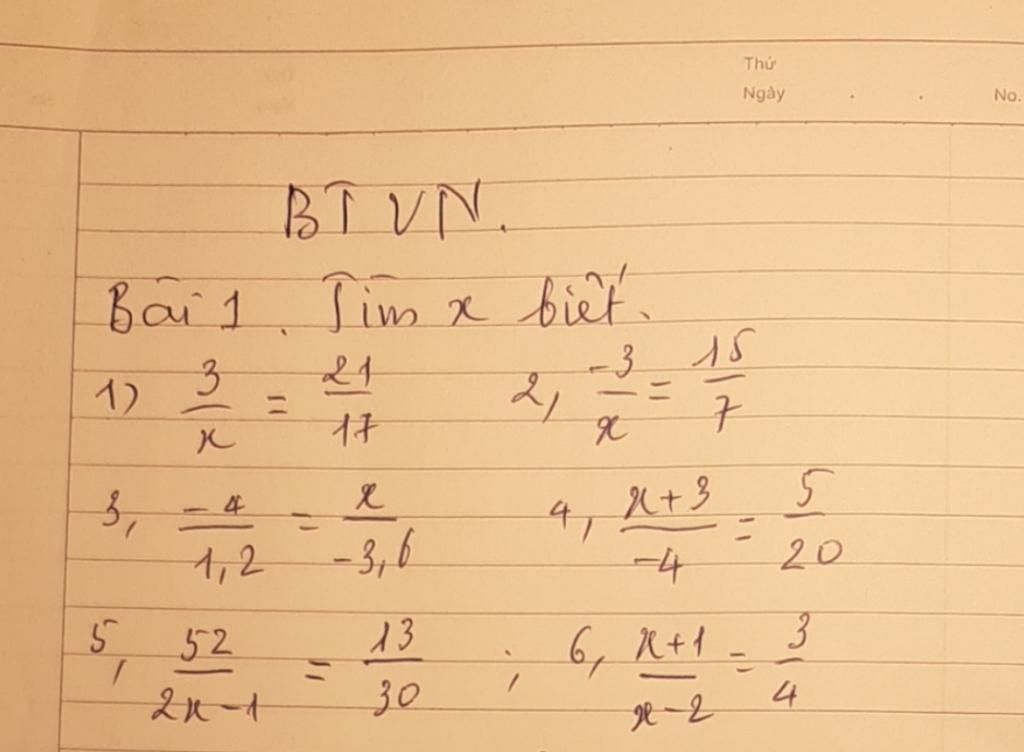 Thứ
Ngày . . No.
BTVN.
Bài 1. Tìm x biết.
1) 3/x = 21/17 2, -3/x = 15/7
3, -4/1,2 = x/-3,6 4, x+3/-4 = 5/20
5, 52/2x-1 = 13/30 ; 6, x+1/x-2 = 3/4